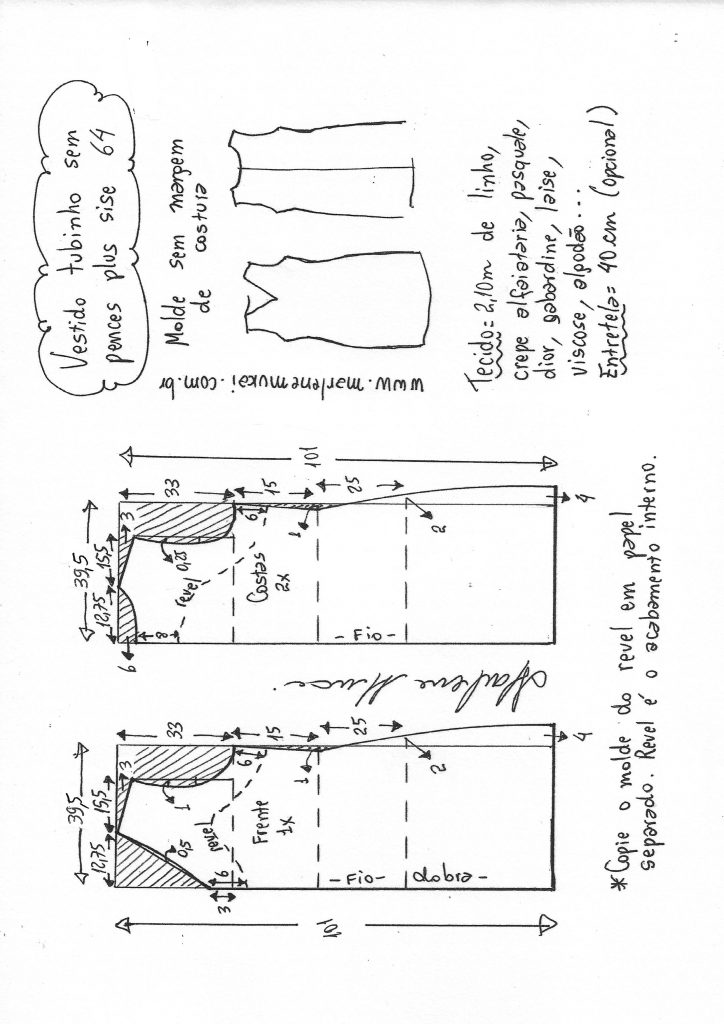 Vestido tubinho sem
pences plus sise 64
Molde sem margem
de costura
www.marlenemukai.com.br
Tecido= 2,10m de linho,
crepe alfaiataria, pasquale,
dior, gabardine, laise,
viscose, algodão...
Entretela= 40cm (opcional)
39,5
12,75
15,5
3
33
15
25
101
6
8
0,25
revel
6
Costas
2x
1
2
4
- Fio -
39,5
12,75
15,5
3
33
15
25
101
0,5
1
revel
6
6
3
Frente
1x
1
2
4
- Fio -
dobra -
*Copie o molde do revel em papel
separado. Revel é o acabamento interno.